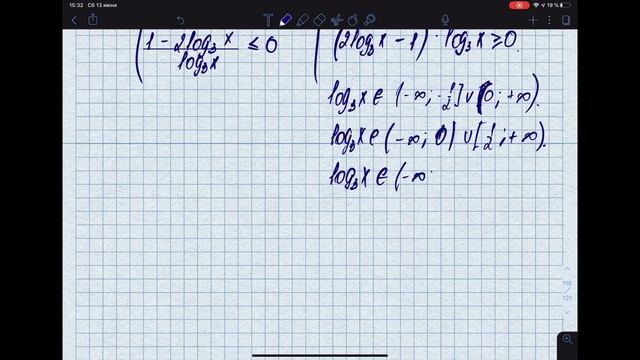 15:32 Сб 13 июня
19 %
(1 - 2log₃x)/log₃x ≤ 0
(2log₃x - 1) · log₃x ≥ 0.
log₃x ∈ (-∞; -1/2] ∪ (0; +∞).
log₃x ∈ (-∞; 0) ∪ [1/2; +∞).
log₃x ∈ (-∞
119 / 121